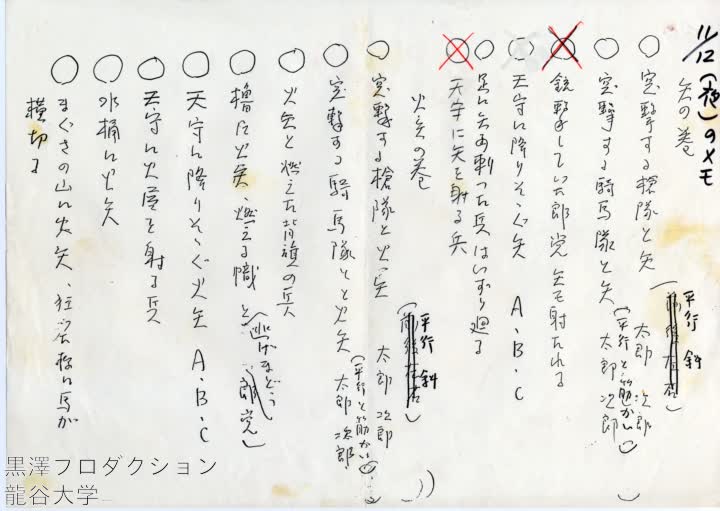 11/12(夜)のメモ
矢の巻
○突撃する槍隊と矢(平行 斜 太郎 次郎)
○突撃する騎馬隊と矢(平行と筋かい 太郎 次郎)
銃撃していた郎党 矢を射たれる
○天守に降りそゝぐ矢 A・B・C
○足に矢の刺った兵はいずり廻る
天守に矢を射る兵
火矢の巻
○突撃する槍隊と火矢(平行 斜 太郎 次郎)
○突撃する騎馬隊と火矢(平行と筋かい 太郎 次郎)
○火矢と燃えた背旗の兵
○櫓に火矢、燃える幟と(逃げまどう郎党)
○天守に降りそゝぐ火矢 A・B・C
○天守に火矢を射る兵
○水桶に火矢
○まぐさの山に火矢、狂奔様に馬が
横切る
黒澤プロダクション
龍谷大学